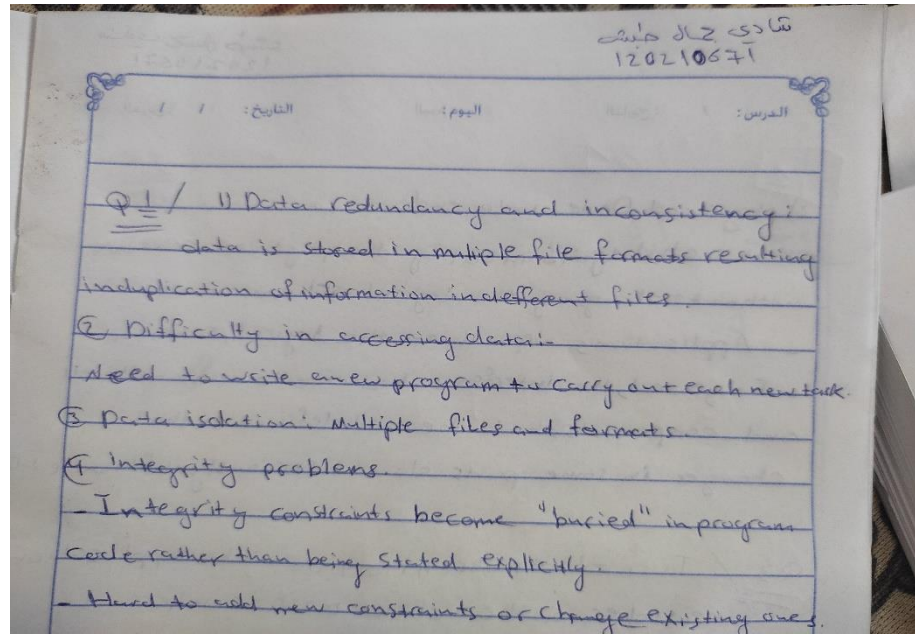 شادي جمال
120210671
الدرس: اليوم: التاريخ: / /
Q1/ 1) Data redundancy and inconsistency:
data is stored in mutiple file formats resulting
induplication of information in defferent files.
2 Difficulty in accessing data:-
Need to write a new program to carry out each new task.
3 Data isolation: Multiple files and formats.
4 integrity problems.
- Integrity constraints become "buried" in program
Code rather than being Stated explicitly.
- Hard to add new constraints or change existing ones.